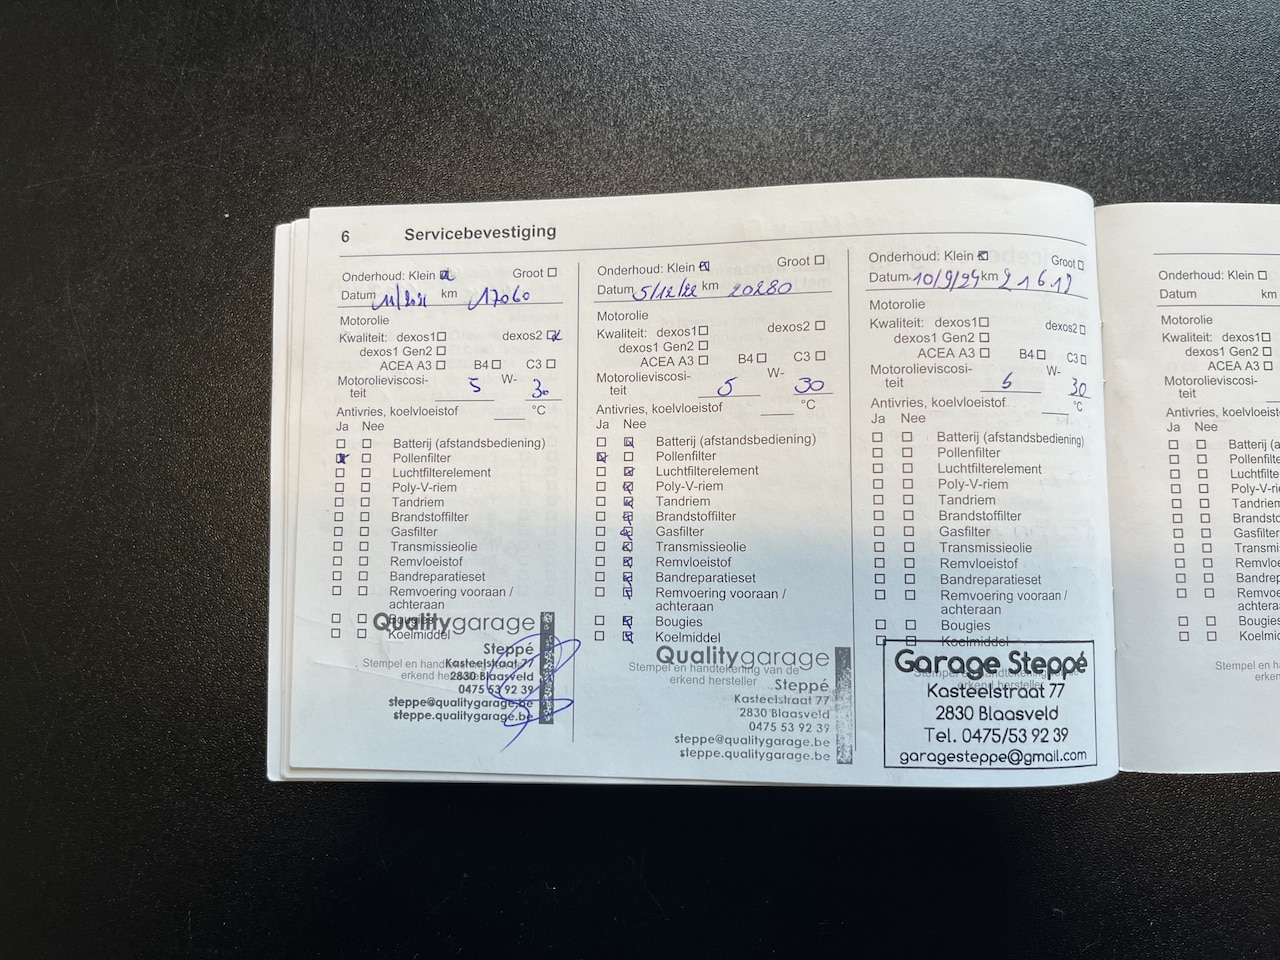 6 Servicebevestiging
Onderhoud: Klein ☒ Groot ☐
Datum 11/2021 km 17060
Motorolie
Kwaliteit: dexos1 ☐ dexos2 ☒
dexos1 Gen2 ☐
ACEA A3 ☐ B4 ☐ C3 ☐
Motorolieviscosi-
teit 5 W- 30
Antivries, koelvloeistof °C
Ja Nee
☐ ☐ Batterij (afstandsbediening)
☒ ☐ Pollenfilter
☐ ☐ Luchtfilterelement
☐ ☐ Poly-V-riem
☐ ☐ Tandriem
☐ ☐ Brandstoffilter
☐ ☐ Gasfilter
☐ ☐ Transmissieolie
☐ ☐ Remvloeistof
☐ ☐ Bandreparatieset
☐ ☐ Remvoering vooraan /
achteraan
☐ ☐ Bougies
☐ ☐ Koelmiddel
Stempel en handtekening van de
erkend hersteller
Qualitygarage
Steppé
Kasteelstraat 77
2830 Blaasveld
0475 53 92 39
steppe@qualitygarage.be
steppe.qualitygarage.be
Onderhoud: Klein ☒ Groot ☐
Datum 5/12/22 km 20280
Motorolie
Kwaliteit: dexos1 ☐ dexos2 ☐
dexos1 Gen2 ☐
ACEA A3 ☐ B4 ☐ C3 ☐
Motorolieviscosi-
teit 5 W- 30
Antivries, koelvloeistof °C
Ja Nee
☐ ☒ Batterij (afstandsbediening)
☒ ☐ Pollenfilter
☐ ☒ Luchtfilterelement
☐ ☒ Poly-V-riem
☐ ☒ Tandriem
☐ ☒ Brandstoffilter
☐ ☒ Gasfilter
☐ ☒ Transmissieolie
☐ ☒ Remvloeistof
☐ ☒ Bandreparatieset
☐ ☒ Remvoering vooraan /
achteraan
☐ ☒ Bougies
☐ ☒ Koelmiddel
Stempel en handtekening van de
erkend hersteller
Qualitygarage
Steppé
Kasteelstraat 77
2830 Blaasveld
0475 53 92 39
steppe@qualitygarage.be
steppe.qualitygarage.be
Onderhoud: Klein ☒ Groot ☐
Datum 10/9/24 km
Motorolie
Kwaliteit: dexos1 ☐ dexos2 ☐
dexos1 Gen2 ☐
ACEA A3 ☐ B4 ☐ C3 ☐
Motorolieviscosi-
teit 5 W- 30
Antivries, koelvloeistof °C
Ja Nee
☐ ☐ Batterij (afstandsbediening)
☐ ☐ Pollenfilter
☐ ☐ Luchtfilterelement
☐ ☐ Poly-V-riem
☐ ☐ Tandriem
☐ ☐ Brandstoffilter
☐ ☐ Gasfilter
☐ ☐ Transmissieolie
☐ ☐ Remvloeistof
☐ ☐ Bandreparatieset
☐ ☐ Remvoering vooraan /
achteraan
☐ ☐ Bougies
☐ ☐ Koelmiddel
erkend hersteller
Garage Steppé
Kasteelstraat 77
2830 Blaasveld
Tel. 0475/53 92 39
garagesteppe@gmail.com
Onderhoud: Klein ☐
Datum km
Motorolie
Kwaliteit: dexos1 ☐
dexos1 Gen2 ☐
ACEA A3 ☐
Motorolieviscosi-
teit
Antivries, koelvloeistof
Ja Nee
☐ ☐ Batterij (a
☐ ☐ Pollenfilte
☐ ☐ Luchtfilte
☐ ☐ Poly-V-ri
☐ ☐ Tandriem
☐ ☐ Brandsto
☐ ☐ Gasfilter
☐ ☐ Transmi
☐ ☐ Remvloe
☐ ☐ Bandrep
☐ ☐ Remvoe
achtera
☐ ☐ Bougies
☐ ☐ Koelmid
Stempel en h
erkend